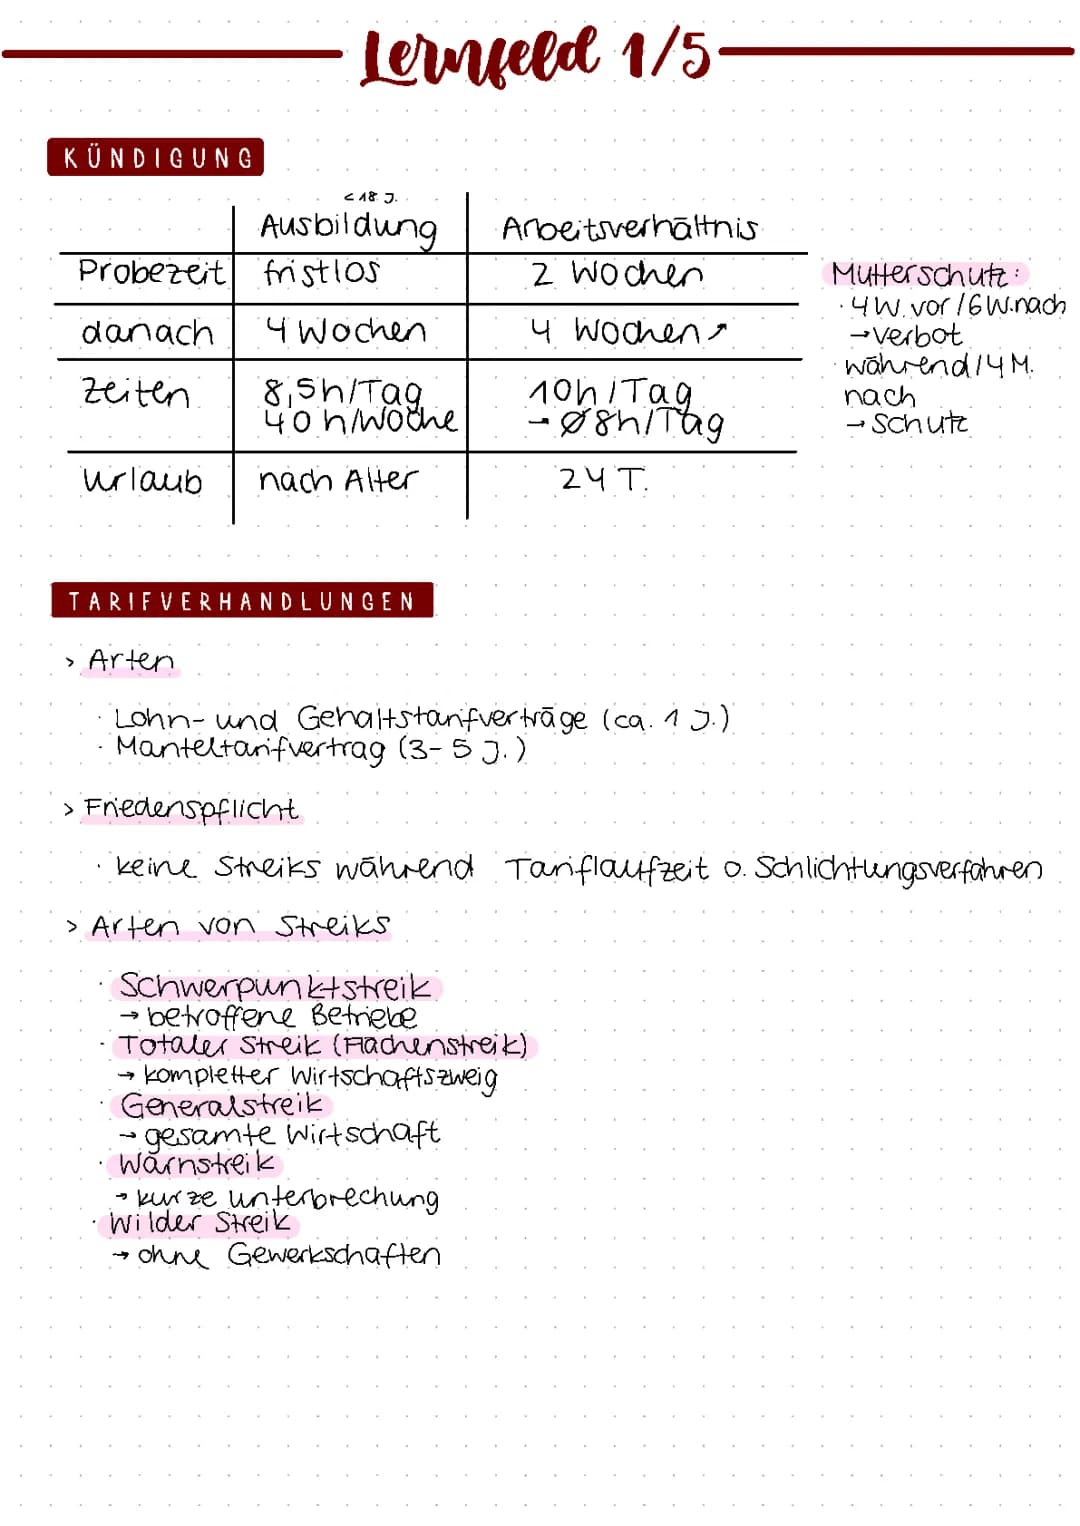 Lernfeld 1/5
KÜNDIGUNG
< 18 J.
Ausbildung Arbeitsverhältnis
Probezeit fristlos 2 Wochen
danach 4 Wochen 4 Wochen ↗
Zeiten 8,5h/Tag 10h/Tag
40h/Woche - Ø8h/Tag
Urlaub nach Alter 24 T.
Mutterschutz:
· 4 W. vor / 6 W. nach
→ Verbot
· während / 4 M.
nach
→ Schutz
TARIFVERHANDLUNGEN
> Arten
· Lohn- und Gehaltstarifverträge (ca. 1 J.)
· Manteltarifvertrag (3-5 J.)
> Friedenspflicht
· keine Streiks während Tariflaufzeit o. Schlichtungsverfahren
> Arten von Streiks
· Schwerpunktstreik
→ betroffene Betriebe
· Totaler Streik (Flächenstreik)
→ kompletter Wirtschaftszweig
· Generalstreik
→ gesamte Wirtschaft
· Warnstreik
→ kurze unterbrechung
· Wilder Streik
→ ohne Gewerkschaften